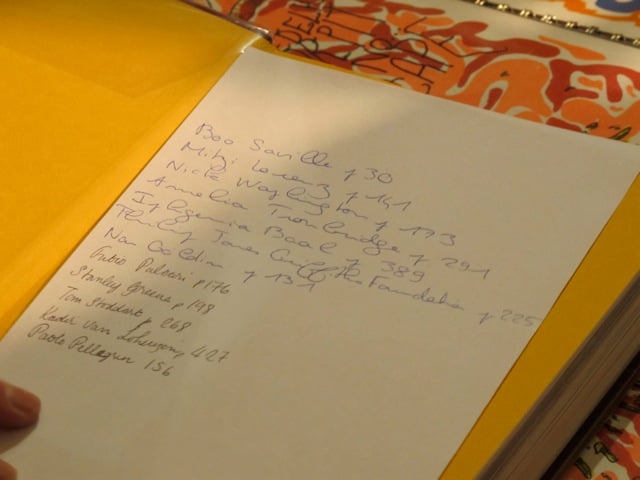 Boo Saville p 30
Mitzi Lorenz p 141
Nick Waplington p 173
Amelia Troubridge p 291
Iphgenia Baal p 389
Philip Jones Griffiths Foundation p 225
Nan Goldin p 131
Fabio Paleari p 176
Stanley Greene p 198
Tom Stoddart p 268
Kadir van Lohuizen p 427
Paolo Pellegrin 156